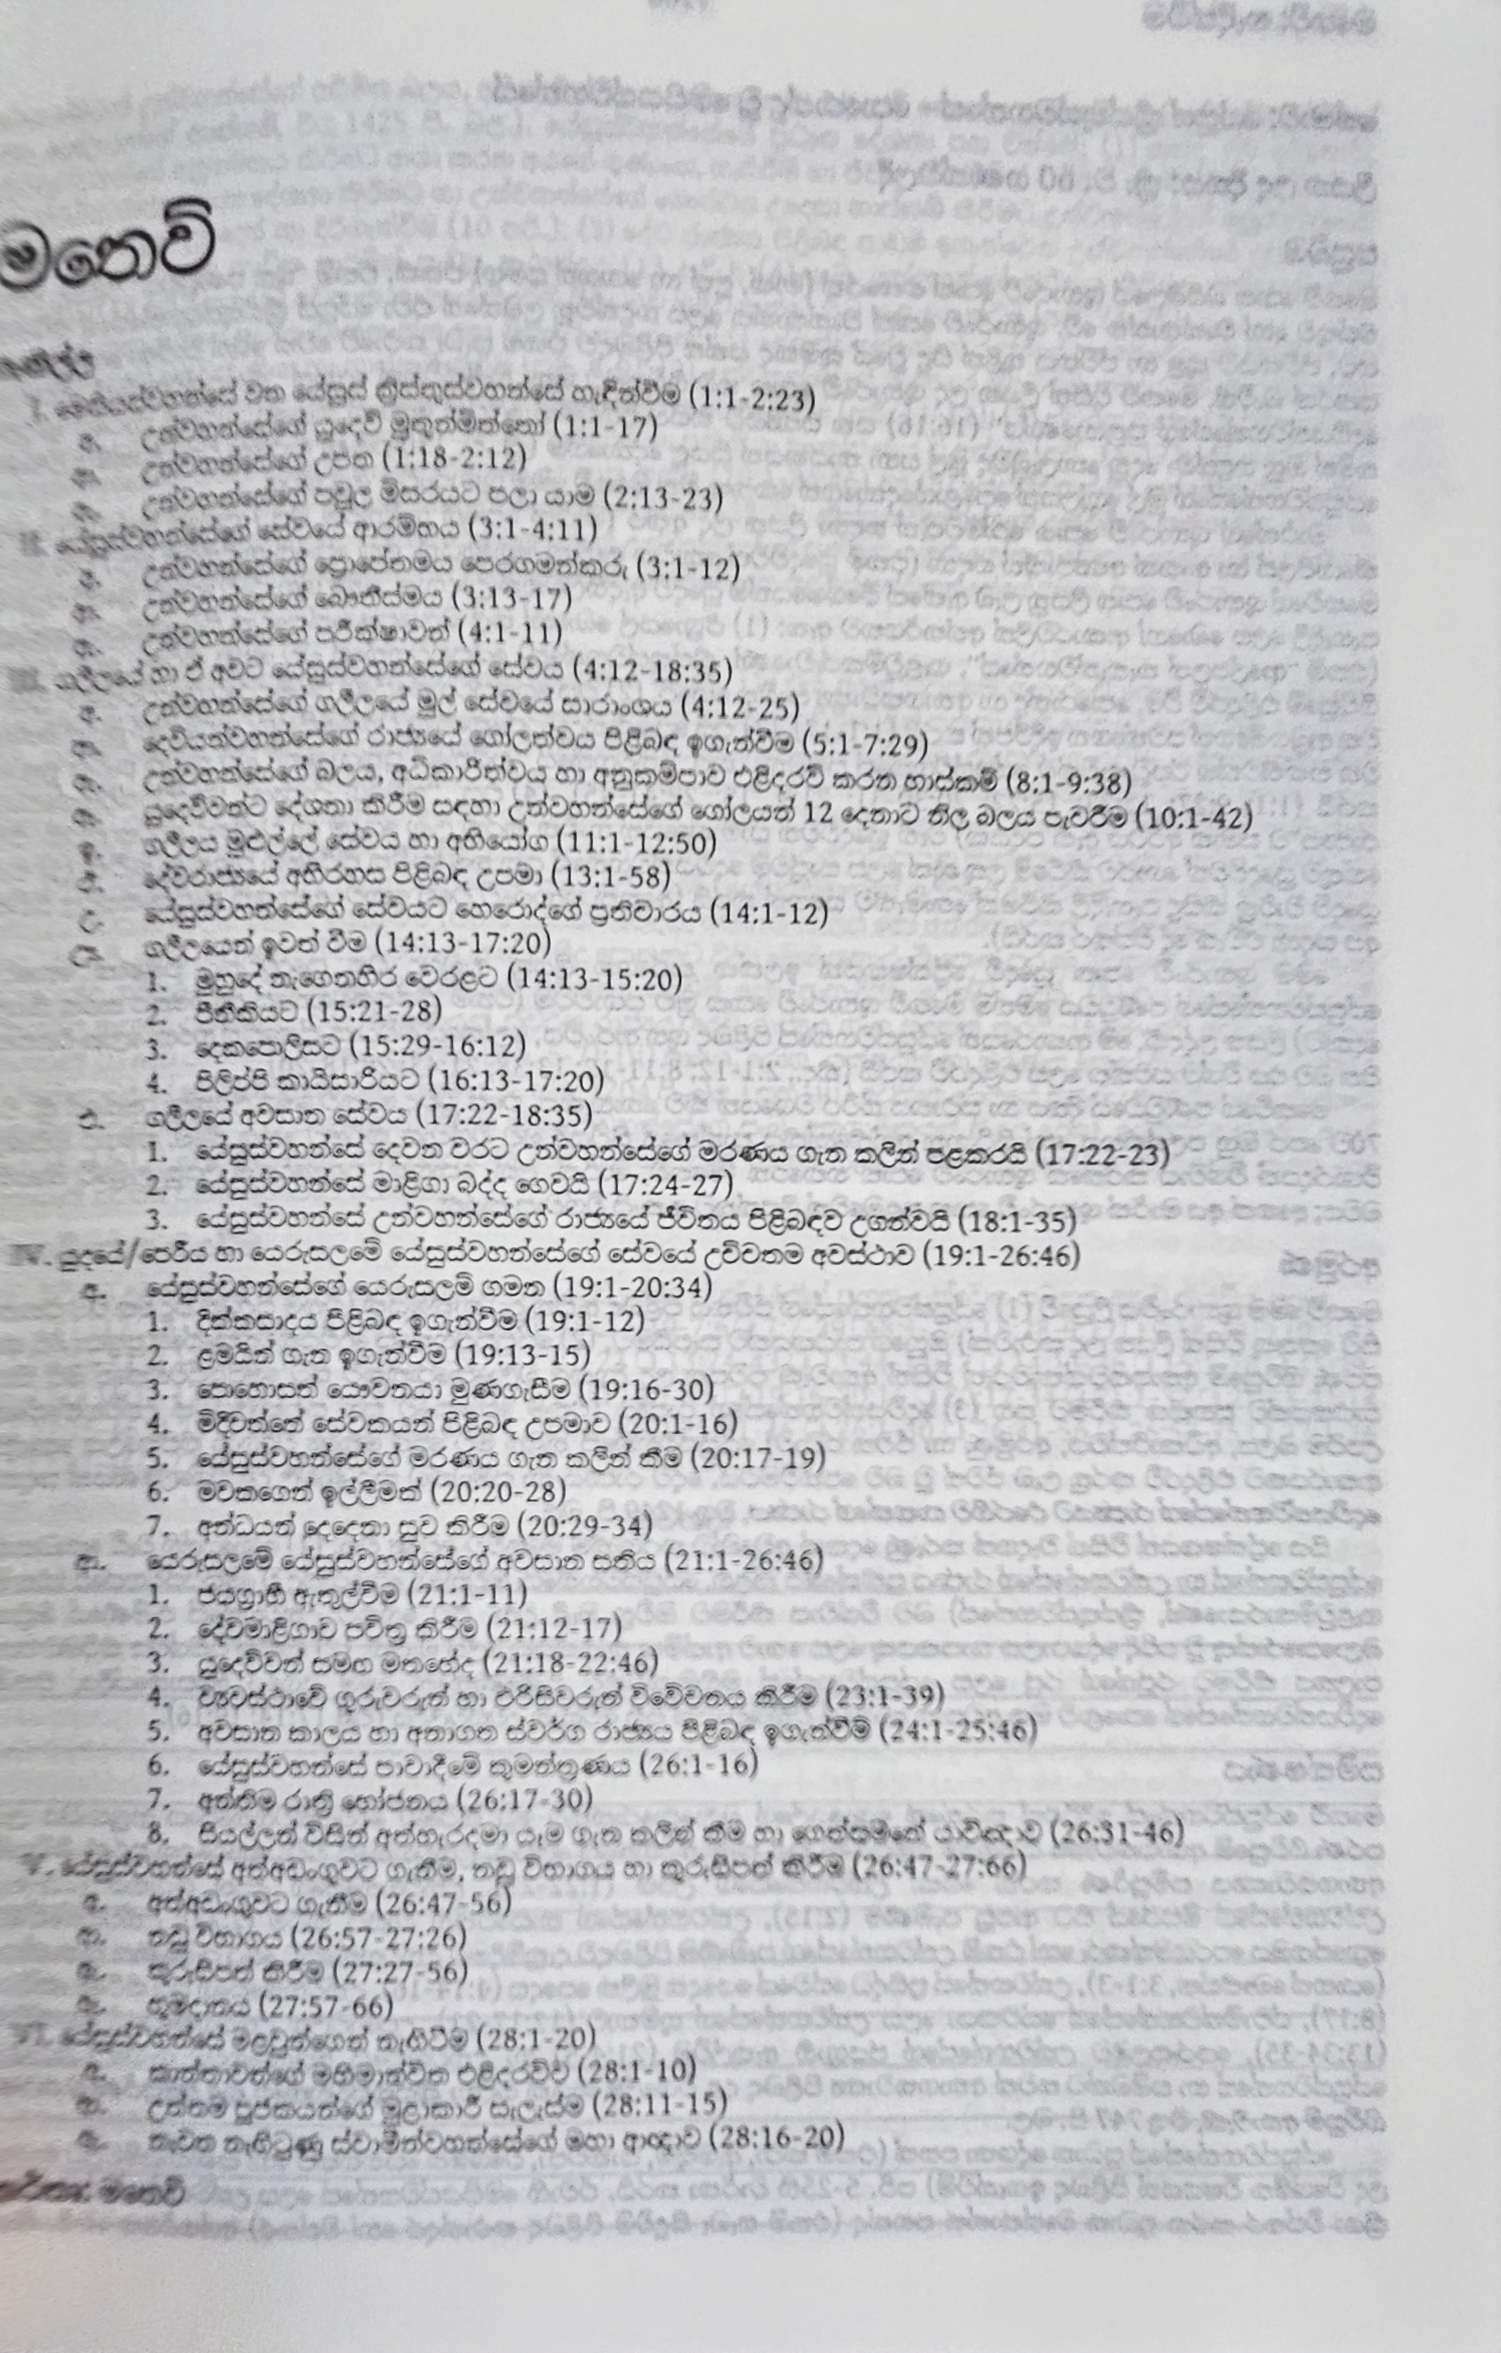 මතෙව්
I. මෙසියස්වහන්සේ වන යේසුස් ක්‍රිස්තුස්වහන්සේ හැඳින්වීම (1:1-2:23)
අ. උන්වහන්සේගේ යුදෙව් මුතුන්මිත්තෝ (1:1-17)
ආ. උන්වහන්සේගේ උපත (1:18-2:12)
ඇ. උන්වහන්සේගේ පවුල මිසරයට පලා යාම (2:13-23)
II. යේසුස්වහන්සේගේ සේවයේ ආරම්භය (3:1-4:11)
අ. උන්වහන්සේගේ ප්‍රොපේතමය පෙරගමන්කරු (3:1-12)
ආ. උන්වහන්සේගේ බෞතීස්මය (3:13-17)
ඇ. උන්වහන්සේගේ පරීක්ෂාවන් (4:1-11)
III. ගලීලයේ හා ඒ අවට යේසුස්වහන්සේගේ සේවය (4:12-18:35)
අ. උන්වහන්සේගේ ගලීලයේ මුල් සේවයේ සාරාංශය (4:12-25)
ආ. දෙවියන්වහන්සේගේ රාජ්‍යයේ ගෝලත්වය පිළිබඳ ඉගැන්වීම (5:1-7:29)
ඇ. උන්වහන්සේගේ බලය, අධිකාරීත්වය හා අනුකම්පාව එළිදරව් කරන හාස්කම් (8:1-9:38)
ඈ. යුදෙව්වන්ට දේශනා කිරීම සඳහා උන්වහන්සේගේ ගෝලයන් 12 දෙනාට නිල බලය පැවරීම (10:1-42)
ඉ. ගලීලය මුළුල්ලේ සේවය හා අභියෝග (11:1-12:50)
ඊ. දේවරාජ්‍යයේ අභිරහස පිළිබඳ උපමා (13:1-58)
උ. යේසුස්වහන්සේගේ සේවයට හෙරොද්ගේ ප්‍රතිචාරය (14:1-12)
ඌ. ගලීලයෙන් ඉවත් වීම (14:13-17:20)
1. මුහුදේ නැගෙනහිර වෙරළට (14:13-15:20)
2. පිනීකියට (15:21-28)
3. දෙකපොලිසට (15:29-16:12)
4. පිලිප්පි කායිසාරියට (16:13-17:20)
එ. ගලීලයේ අවසාන සේවය (17:22-18:35)
1. යේසුස්වහන්සේ දෙවන වරට උන්වහන්සේගේ මරණය ගැන කලින් පළකරයි (17:22-23)
2. යේසුස්වහන්සේ මාළිගා බද්ද ගෙවයි (17:24-27)
3. යේසුස්වහන්සේ උන්වහන්සේගේ රාජ්‍යයේ ජීවිතය පිළිබඳව උගන්වයි (18:1-35)
IV. යුදයේ/පෙරීය හා යෙරුසලමේ යේසුස්වහන්සේගේ සේවයේ උච්චතම අවස්ථාව (19:1-26:46)
අ. යේසුස්වහන්සේගේ යෙරුසලම් ගමන (19:1-20:34)
1. දික්කසාදය පිළිබඳ ඉගැන්වීම (19:1-12)
2. ළමයින් ගැන ඉගැන්වීම (19:13-15)
3. පොහොසත් යෞවනයා මුණගැසීම (19:16-30)
4. මිදිවත්තේ සේවකයන් පිළිබඳ උපමාව (20:1-16)
5. යේසුස්වහන්සේගේ මරණය ගැන කලින් කීම (20:17-19)
6. මවකගෙන් ඉල්ලීමක් (20:20-28)
7. අන්ධයන් දෙදෙනා සුව කිරීම (20:29-34)
ආ. යෙරුසලමේ යේසුස්වහන්සේගේ අවසාන සතිය (21:1-26:46)
1. ජයග්‍රාහී ඇතුල්වීම (21:1-11)
2. දේවමාළිගාව පවිත්‍ර කිරීම (21:12-17)
3. යුදෙව්වන් සමඟ මතභේද (21:18-22:46)
4. ව්‍යවස්ථාවේ ගුරුවරුන් හා ඵරිසිවරුන් විවේචනය කිරීම (23:1-39)
5. අවසාන කාලය හා අනාගත ස්වර්ග රාජ්‍යය පිළිබඳ ඉගැන්වීම් (24:1-25:46)
6. යේසුස්වහන්සේ පාවාදීමේ කුමන්ත්‍රණය (26:1-16)
7. අන්තිම රාත්‍රි භෝජනය (26:17-30)
8. සියල්ලන් විසින් අත්හැරදමා යෑම ගැන කලින් කීම හා ගෙත්සමනේ යාච්ඤාව (26:31-46)
V. යේසුස්වහන්සේ අත්අඩංගුවට ගැනීම, නඩු විභාගය හා කුරුසිපත් කිරීම (26:47-27:66)
අ. අත්අඩංගුවට ගැනීම (26:47-56)
ආ. නඩු විභාගය (26:57-27:26)
ඇ. කුරුසිපත් කිරීම (27:27-56)
ඈ. භූමදානය (27:57-66)
VI. යේසුස්වහන්සේ මළවුන්ගෙන් නැඟිටීම (28:1-20)
අ. කාන්තාවන්ගේ මහිමාන්විත එළිදරව්ව (28:1-10)
ආ. උත්තම පූජකයන්ගේ මුළාකාරී සැලැස්ම (28:11-15)
ඇ. නැවත නැඟිටුණු ස්වාමීන්වහන්සේගේ මහා ආඥාව (28:16-20)
මතෙව්